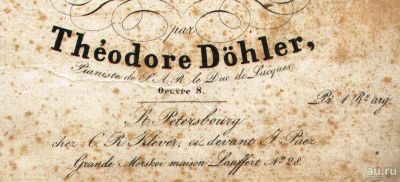 par
Théodore Döhler,
Pianiste de S.A.R. le Duc de Lucques.
Oeuvre 8.
Pr. 1 Rº arg.
St. Petersbourg
chez C. R. Klever, ci devant J. Paez
Grande Morskoi maison Lauffert Nº 28.
au.ru